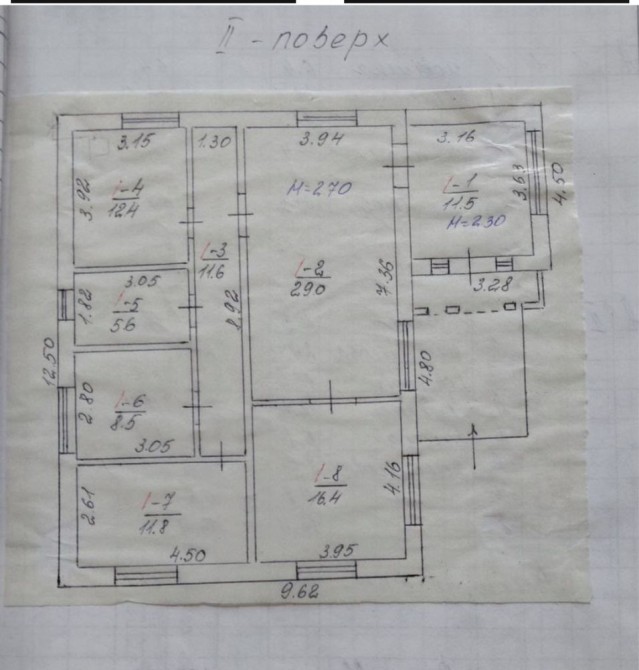 II - поверх
3.15
1.30
3.94
3.16
3.92
1-4
12.4
H=2.70
1-1
11.5
3.63
4.50
H=2.30
1-3
11.6
1-2
29.0
7.36
3.28
3.05
1.82
1-5
5.6
8.92
12.50
4.80
2.80
1-6
8.5
3.05
1-8
16.4
4.16
2.61
1-7
11.8
4.50
3.95
9.62